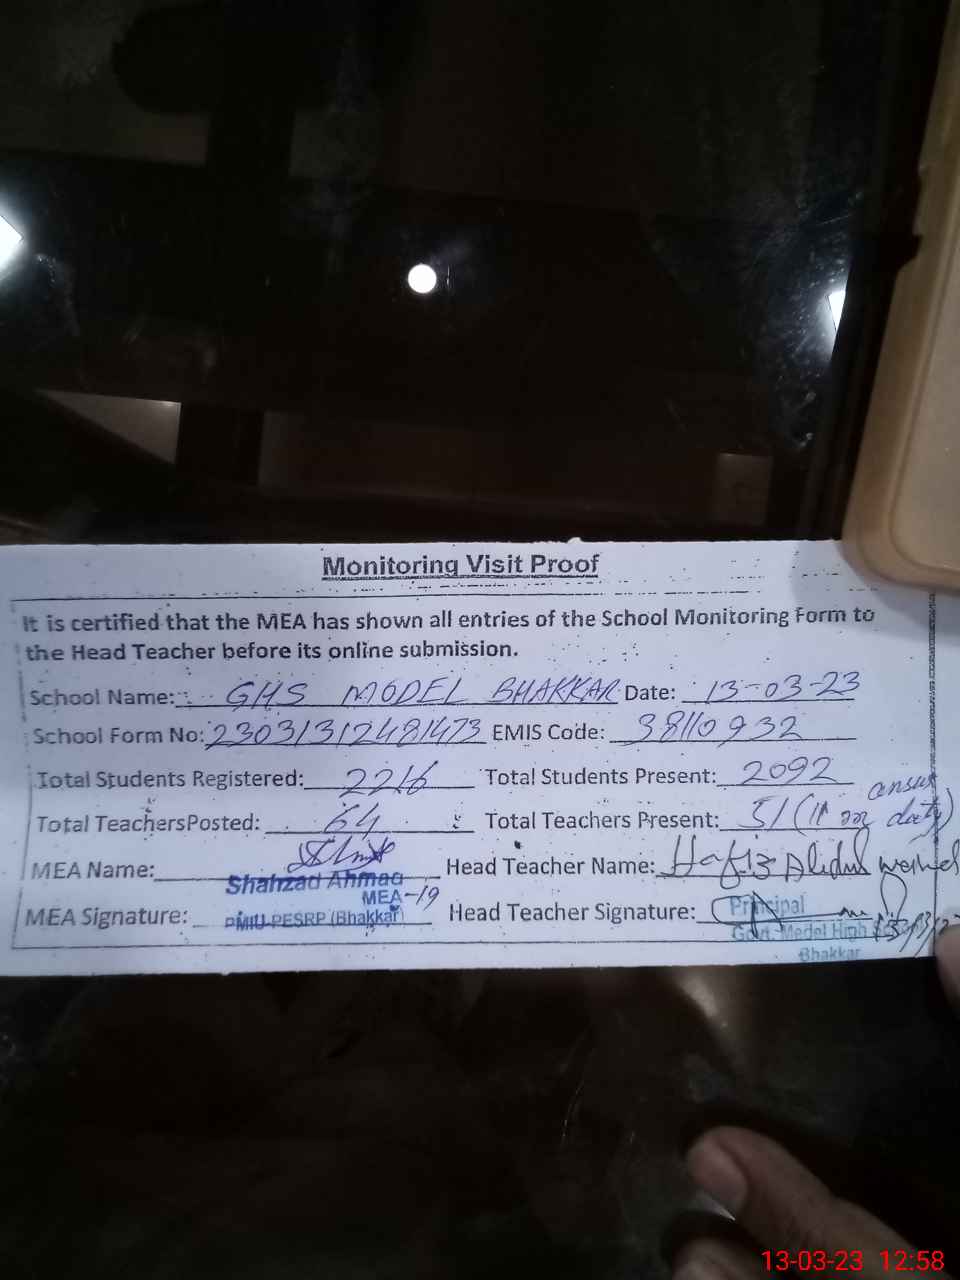 Monitoring Visit Proof
It is certified that the MEA has shown all entries of the School Monitoring Form to
the Head Teacher before its online submission.
School Name: GHS MODEL BHAKKAR Date: 13-03-23
School Form No: 2303131248 1473 EMIS Code: 38110932
Total Students Registered: 2216 Total Students Present: 2092
census
Total TeachersPosted: 64 Total Teachers Present: 51 (11 on duty)
MEA Name: Head Teacher Name: Hafiz
Shahzad Ahmad
MEA-19
MEA Signature: PMIU-PESRP (Bhakkar) Head Teacher Signature: Principal
Govt. Model High School
Bhakkar
13-03-23 12:58